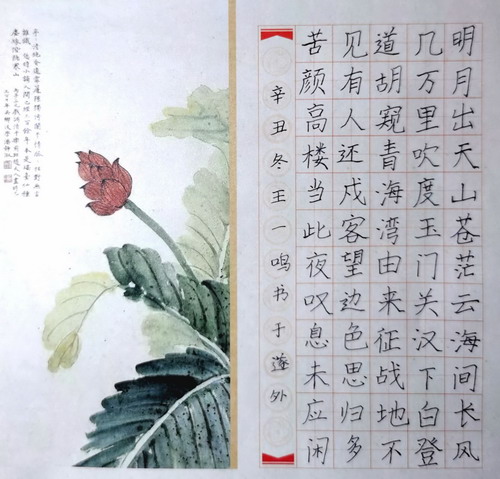 明月出天山苍茫云海间长风
几万里吹度玉门关汉下白登
道胡窥青海湾由来征战地不
见有人还戍客望边色思归多
苦颜高楼当此夜叹息未应闲
辛丑冬王一鸣书于遂外